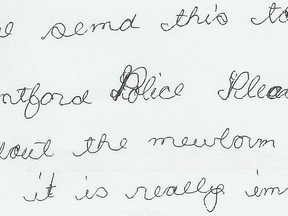 e send this to
ntford Police Plea
out the mewlorm
it is really im